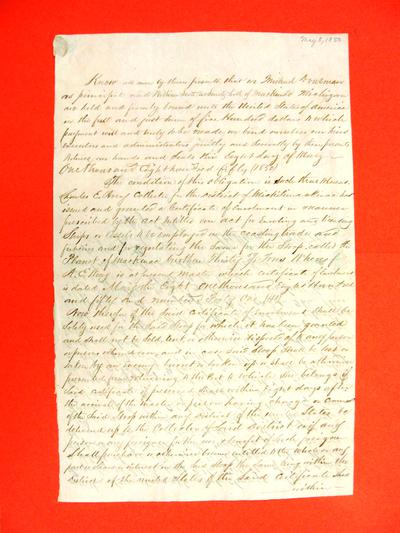 May 8, 1850
Know all men by these presents that we Michael
as principal and as Surety both of Mackinac Michigan
are held and firmly bound unto the United States of America
in the full and just sum of five Hundred dollars to which
payment well and truly to be made we bind ourselves our heirs
executors and administrators jointly and severally by these presents
Witness our hands and Seals this Eight day of May
One thousand Eight hundred fifty (1850)
The condition of this obligation is such that Whereas
Charles E. Avery Collector for the district of Michilimackinac has
issued and granted a Certificate of enrolment in manner
prescribed by the act entitled an act for Enrolling and
Ships or Vessels to be employed in the coasting trade and
fisheries and for regulating the same for the Sloop called the
Planet of Mackinac burthen Thirty Tons Whereof
is at present master which certificate of enrolment
is dated the Eight One thousand Eight Hundred
and fifty and numbered
Now therefore if the said Certificate of enrolment shall be
solely used for the said Sloop for which it has been granted
and shall not be sold, lent or otherwise disposed of to any person
or persons whomsoever and in case said Sloop shall be lost or
taken by an enemy burnt or broken up or shall be otherwise
prevented from returning to the Port to which she belongs
said certificate if preserved shall within Eight days after
the arrival of the master or person having charge or Command
of the said Sloop within any District of the United States be
delivered up to the Collector of said District and if any
foreigner or any person for the use & benefit of such foreigner
Shall purchase or otherwise become entitled to the whole or any
part or share or interest in the said Sloop the same being within the
District of the United States the said certificate shall
within